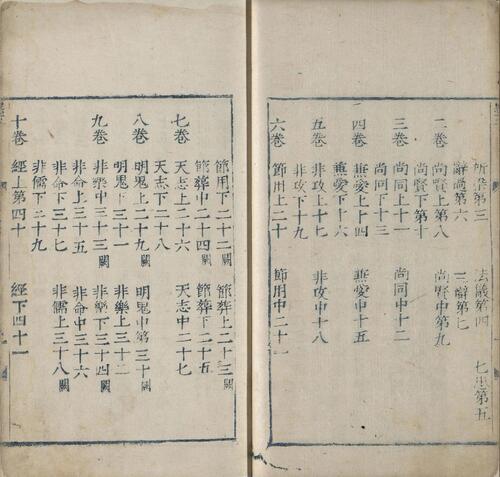 所染第三 法儀第四 七患第五
辭過第六 三辯第七
二卷 尚賢上第八 尚賢中第九
尚賢下第十
三卷 尚同上十一 尚同中十二
尚同下十三
四卷 兼愛上十四 兼愛中十五
兼愛下十六
五卷 非攻上十七 非攻中十八
非攻下十九
六卷 節用上二十 節用中二十一
節用下二十二闕 節葬上二十三闕
節葬中二十四闕 節葬下二十五
七卷 天志上二十六 天志中二十七
天志下二十八
八卷 明鬼上二十九闕 明鬼中第三十闕
明鬼下三十一 非樂上三十二
九卷 非樂中三十三闕 非樂下三十四闕
非命上三十五 非命中三十六
非命下三十七 非儒上三十八闕
非儒下二十九
十卷 經上第四十 經下四十一